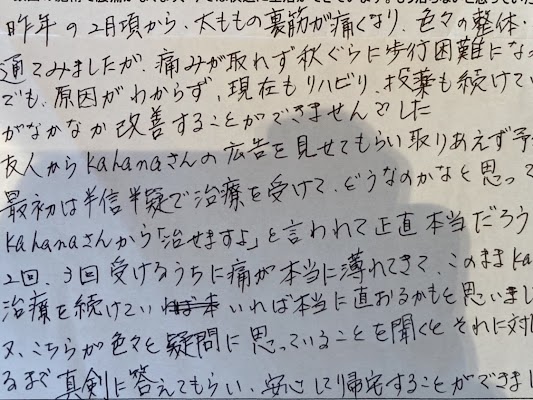 昨年の2月頃から、太ももの裏筋が痛くなり、色々の整体・
通てみましたが、痛みが取れず秋ぐらに歩行困難にな
でも、原因がわからず、現在もリハビリ、投薬も続けてい
がなかなか改善することができませんでした
友人からkahanaさんの広告を見せてもらい取りあえず予
最初は半信半疑で治療を受けて、どうなのかなと思って
kahanaさんから「治せますよ」と言われて正直本当だろう
2回、3回受けるうちに痛が本当に薄れてきて、このままka
治療を続けていいれば本当に直おるかもと思いまし
又、こちらが色々と疑問に思っていることを聞くとそれに対し
るまで真剣に答えてもらい、安心して帰宅することができまし